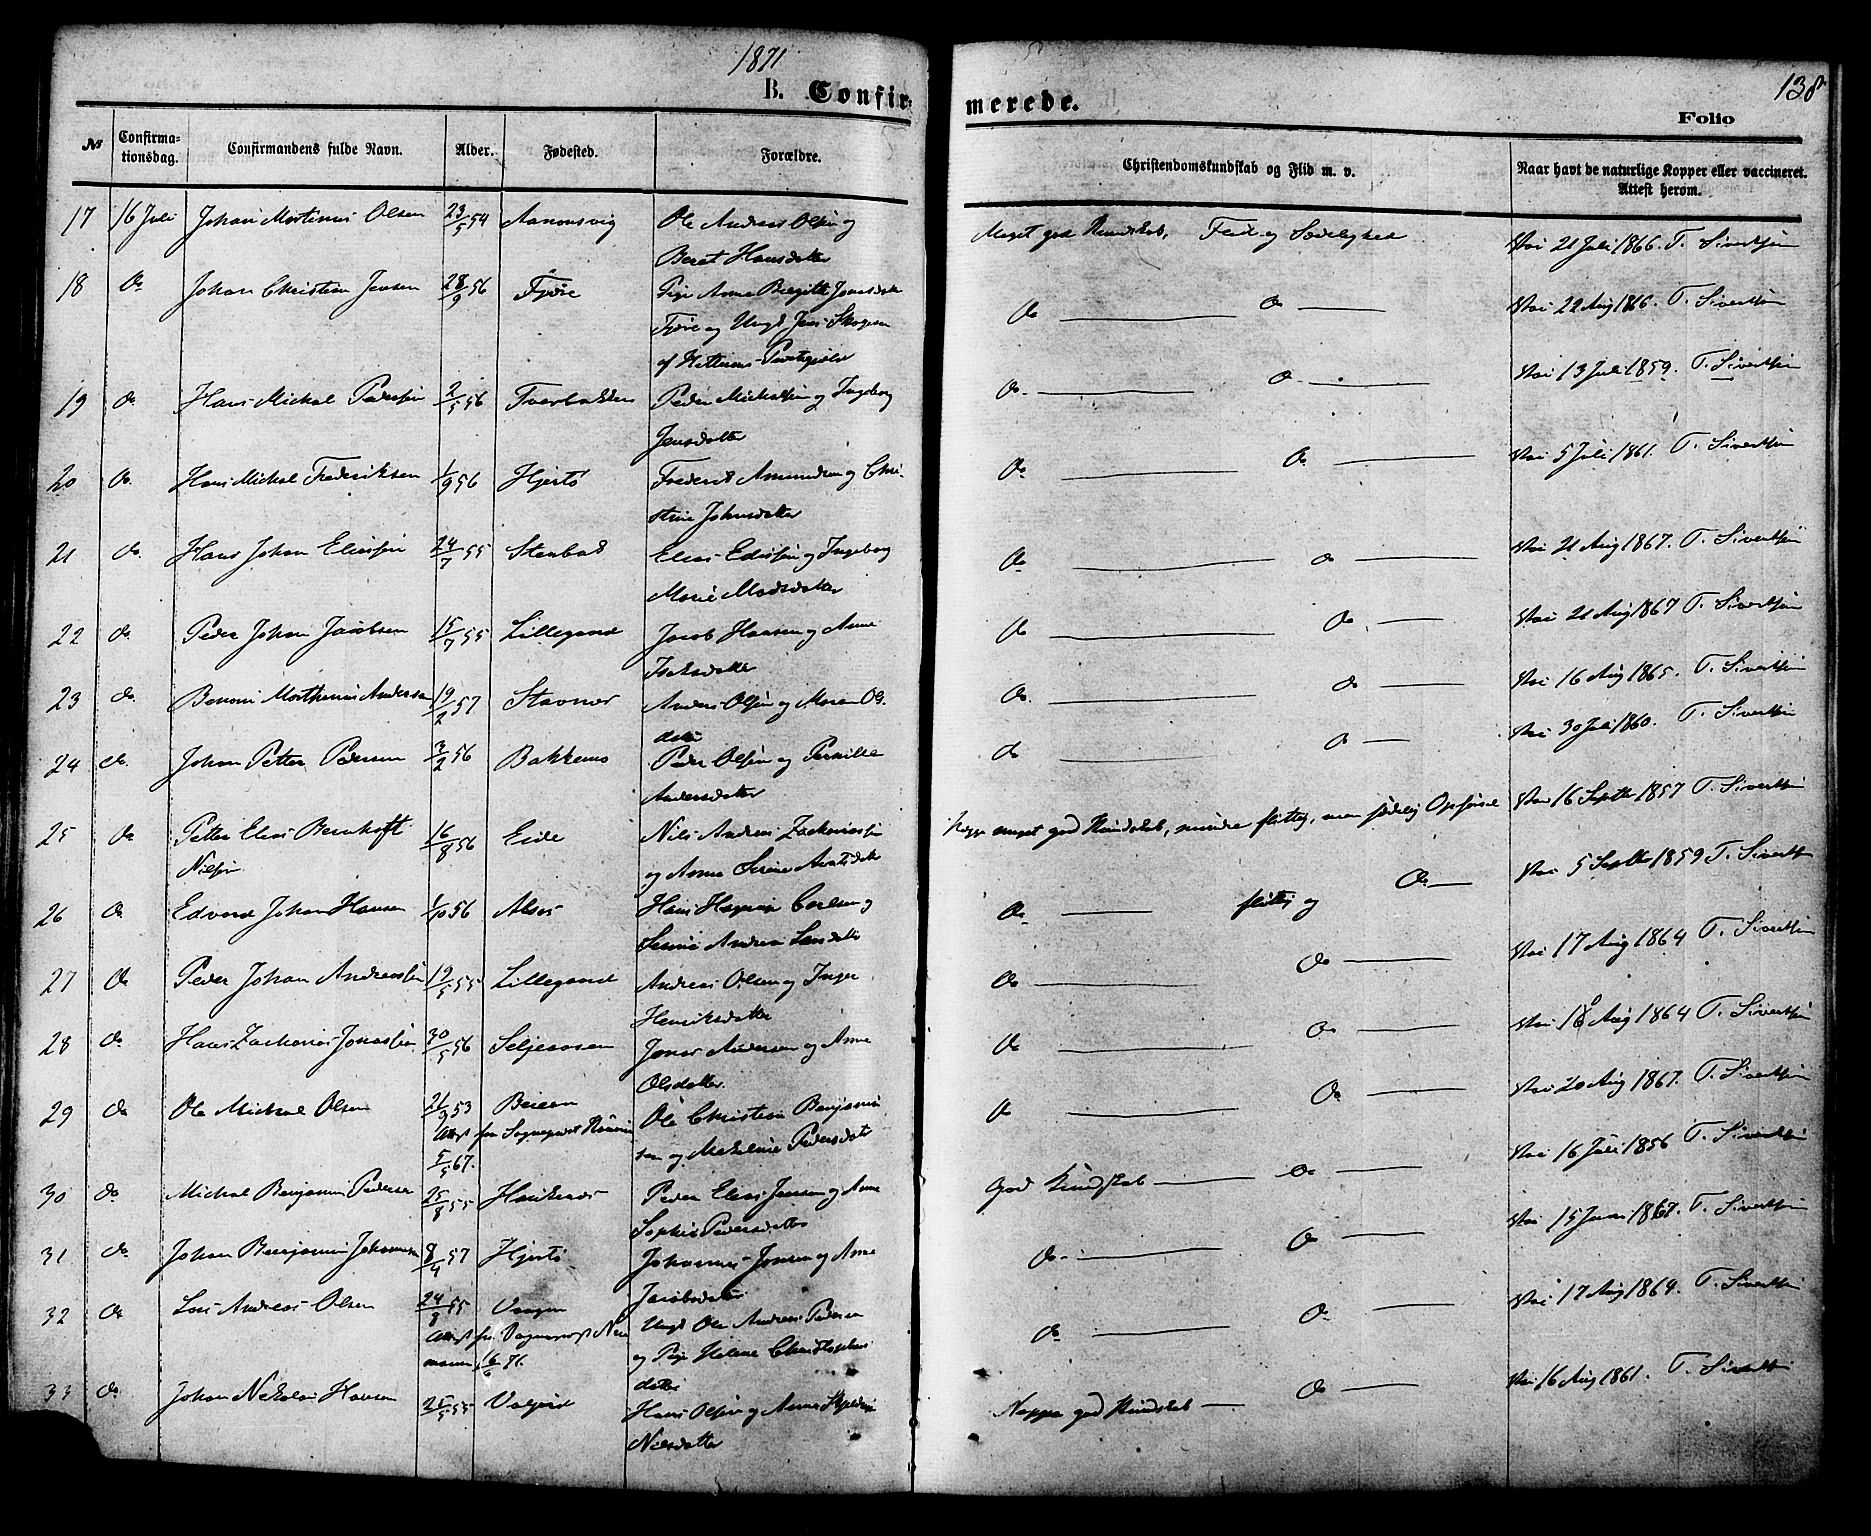 1871
138
B. Confir-
merede.
Folio
No
Confirma-
tionsdag.
Confirmandens fulde Navn.
Alder.
Fødested.
Forældre.
Christendomskundskab og Flid m. v.
Naar havt de naturlige Kopper eller vaccineret.
Attest herom.
17 16 Juli Johan Martinus Olsen 23/5 54 Aanonsvig Ole Andreas Olsen og
Beret Hansdatter
Meget god Kundskab, Flid og Sædelighed
Vac 21 Juli 1866. T. Sivertsen
18 do Johan Christian Jensen 28/9 56 Fjøre Pige Anne Birgitte
Fjøre og Ungk Jens
af
do do
Vac 22 Aug 1866. T. Sivertsen
19 do Hans Michal Pedersen 2/5 56 Tverbakken Peder Michalsen og Ingeborg
Jensdatter
do do
Vac 13 Juli 1859. T. Sivertsen
20 do Hans Michal Frederiksen 1/9 56 Hjertø Frederik Amundsen og Chri-
stine Johnsdatter
do do
Vac 5 Juli 1861. T. Sivertsen
21 do Hans Johan Eliassen 24/7 55 Stenbak Elias Eliassen og Ingeborg
Marie Madsdatter
do do
Vac 21 Aug 1867. T. Sivertsen
22 do Peder Johan Jacobsen 15/7 55 Lillegaard Jacob Hansen og Anne
Isaksdatter
do do
Vac 21 Aug 1867 T. Sivertsen
23 do Benoni Marthinus Andersen 19/2 57 Stavnes Anders Olsen og Maren Ols-
datter
do do
Vac 16 Aug 1865. T. Sivertsen
24 do Johan Petter Pedersen 3/2 56 Bakkemo Peder Olsen og Pernille
Andersdatter
do do
Vac 30 Juli 1860. T. Sivertsen
25 do Petter Elias Bernhoft 16/8 56 Eide Nils Andreas Zachariassen
Nilsen
og Anna Serine
meget god Kundskab, mindre flittig, men sædelig Opførsel
Vac 16 Septbr 1857 T. Sivertsen
26 do Edvard Johan Hansen 1/10 56 Alsos Hans
Serine Andrea
do flittig og do
Vac 5 Septbr 1859 T. Sivertsen
27 do Peder Johan Andreassen 19/5 55 Lillegaard Andreas Olsen og Inger
Henriksdatter
do do
Vac 17 Aug 1864 T. Sivertsen
28 do Hans Zacharias Jonassen 30/5 56 Seljeaasen Jonas Andersen og Anne
Olsdatter
do do
Vac Aug 1864 T. Sivertsen
29 do Ole Michal Olsen 21/9 53 Beieren Ole Christian Benjamin-
Att fra Sognepræst
5/5 67.
sen og Mekeline Pedersdat
do do
Vac 20 Aug 1867. T. Sivertsen
30 do Michal Benjamin Pedersen 25/8 55 Peder Elias Jensen og Anne
Sophie Pedersdatter
God Kundskab do
Vac 16 Juli 1856 T. Sivertsen
31 do Johan Benjamin Johannesen 8/4 57 Hjertø Johannes Jonsen og Anne
Jacobsdatter
do do
Vac 15 Juni 1867. T. Sivertsen
32 do Lars Andreas Olsen 24/8 55 Vaagan Ungk Ole Andreas Pedersen
og Pige Helene Christophers
datter
16/6 71.
do do
Vac 17 Aug 1864. T. Sivertsen
33 do Johan Nikolai Hansen 25/5 55 Valjord Hans Olsen og Anne
Nilsdatter
god Kundskab do
Vac 16 Aug 1861. T. Sivertsen